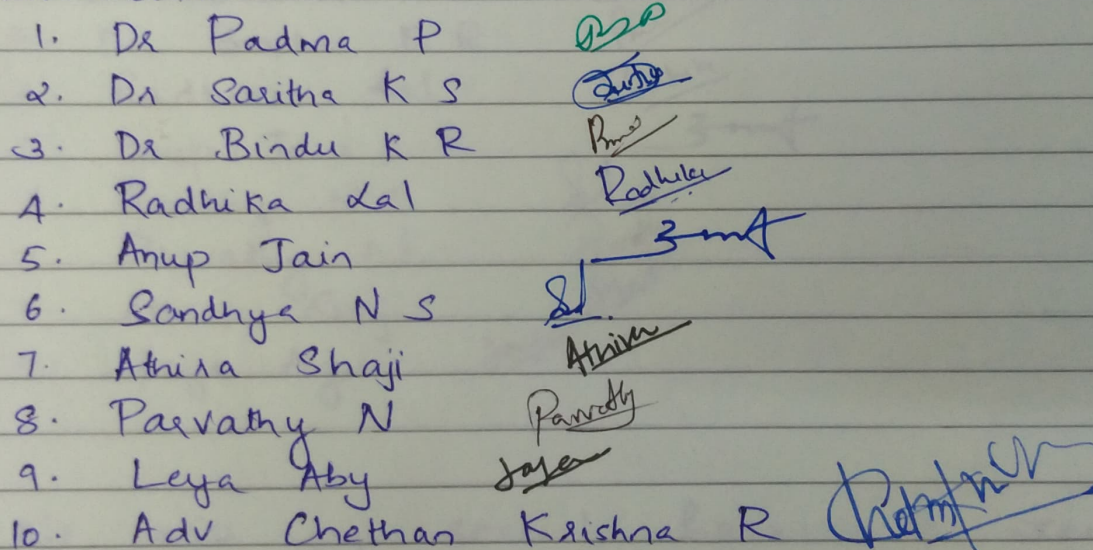 1. Dr Padma P
2. Dr Saritha K S
3. Dr Bindu K R
4. Radhika Lal Radhika
5. Anup Jain
6. Sandhya N S
7. Athira Shaji Athira
8. Parvathy N Parvathy
9. Leya Aby
10. Adv Chethan Krishna R